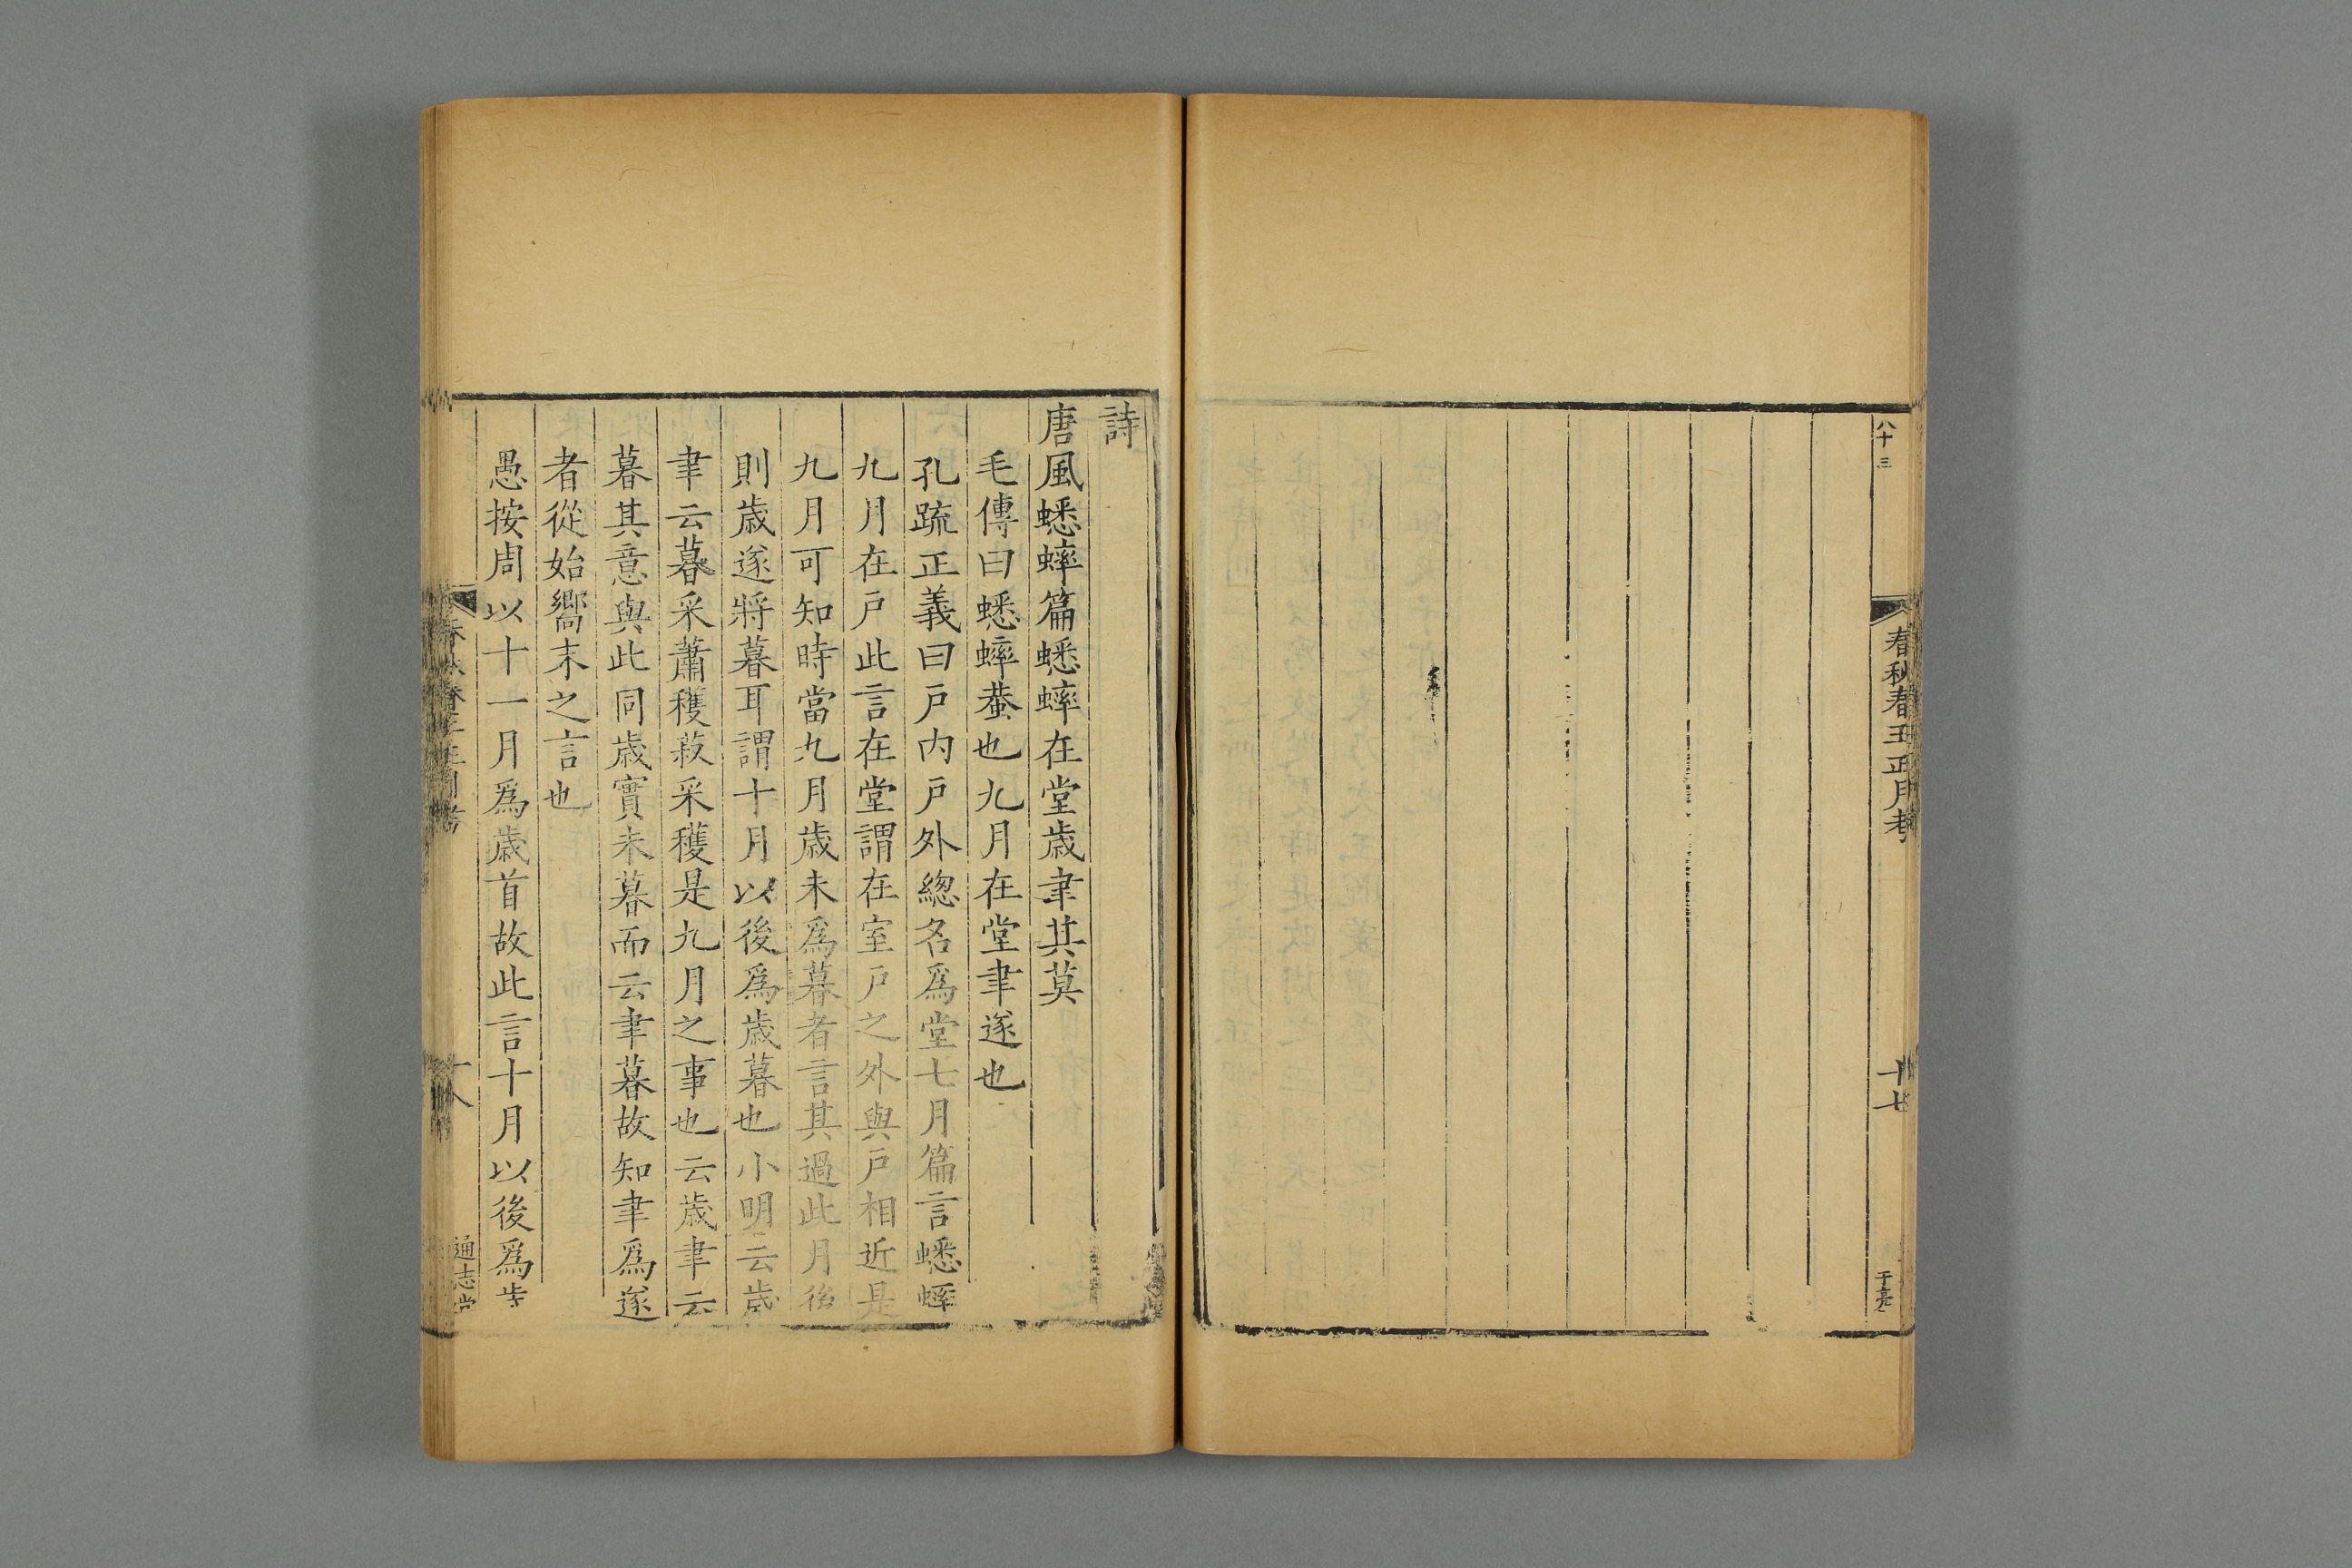 八十三
春秋春王正月考
十七
于亮
詩
唐風蟋蟀篇蟋蟀在堂歳聿其莫
毛傳曰蟋蟀蛬也九月在堂聿遂也
孔䟽正義曰戸内戸外緫名爲堂七月篇言蟋蟀
九月在戸此言在堂謂在室戸之外與戸相近是
九月可知時當九月歳未爲暮者言其過此月後
則歳遂將暮耳謂十月以後爲歳暮也小明云歳
聿云暮采蕭穫菽采穫是九月之事也云歳聿云
暮其意與此同歳實未暮而云聿暮故知聿爲遂
者從始嚮末之言也
愚按周以十一月爲歳首故此言十月以後爲歩
十八
通志堂